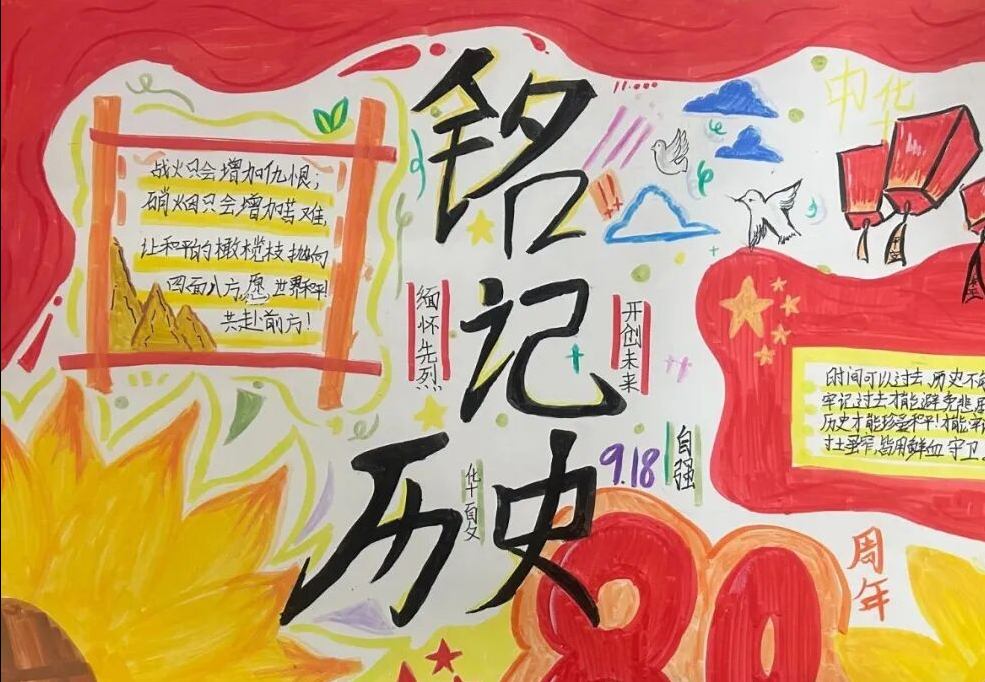 铭记
历史
战火只会增加仇恨；
硝烟只会增加苦难，
让和平的橄榄枝抛向
四面八方，愿世界和平！
共赴前方！
缅怀先烈
开创未来
中华
华夏
9.18
自强
80
周年
时间可以过去，历史不
牢记过去才能避免悲
历史才能珍爱和平！才能
寸土 皆用鲜血守卫